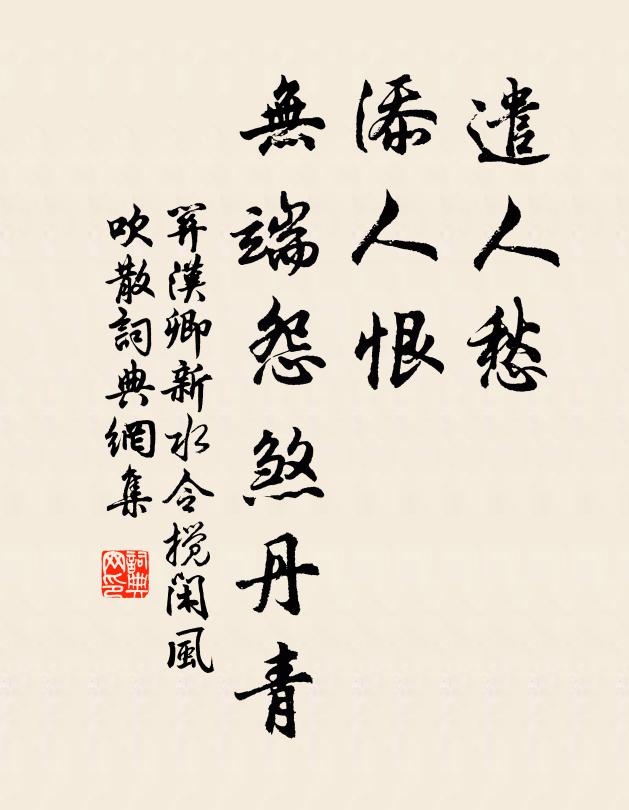 遣人愁
添人恨
無端怨煞丹青
關漢卿新水令攪閑風
吹散詞典網集
詞典
网印